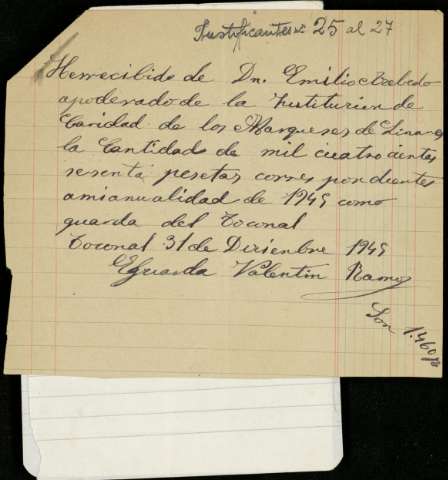 Justificantes nº 25 al 27
He recibido de Dn. Emilio
apoderado de la Institucion de
Caridad de los Marqueses de Linares
la Cantidad de mil cuatrocientas
sesenta pesetas correspondientes
amianualidad de 1949 como
guarda del Toconal
Toconal 31 de Diciembre 1949
Elguarda Valentin Ramos
Son 1.460 pts